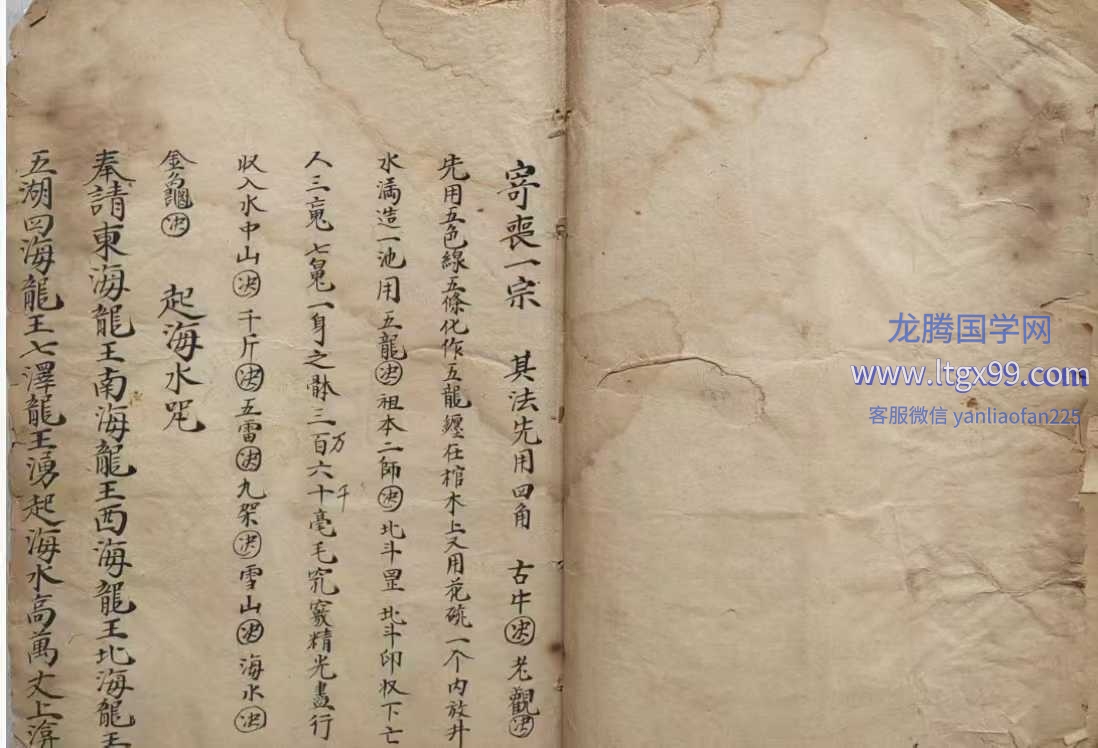 寄喪一宗 其法先用四角 古牛決 老觀決
先用五色線五條化作五龍纏在棺木上又用花碗一个内放井
水满造一池用五龍決祖本二師決北斗罡北斗印收下亡
人三䰟七魄一身之骵三百万六十千毫毛究竅精光盡行
收入水中山決千斤決五雷決九架決雪山決海水決
金龜決 起海水咒
奉請東海龍王南海龍王西海龍王北海龍王
五湖四海龍王七澤龍王湧起海水高萬丈上
龙腾国学网
www.ltgx99.com
客服微信 yanliaofan225